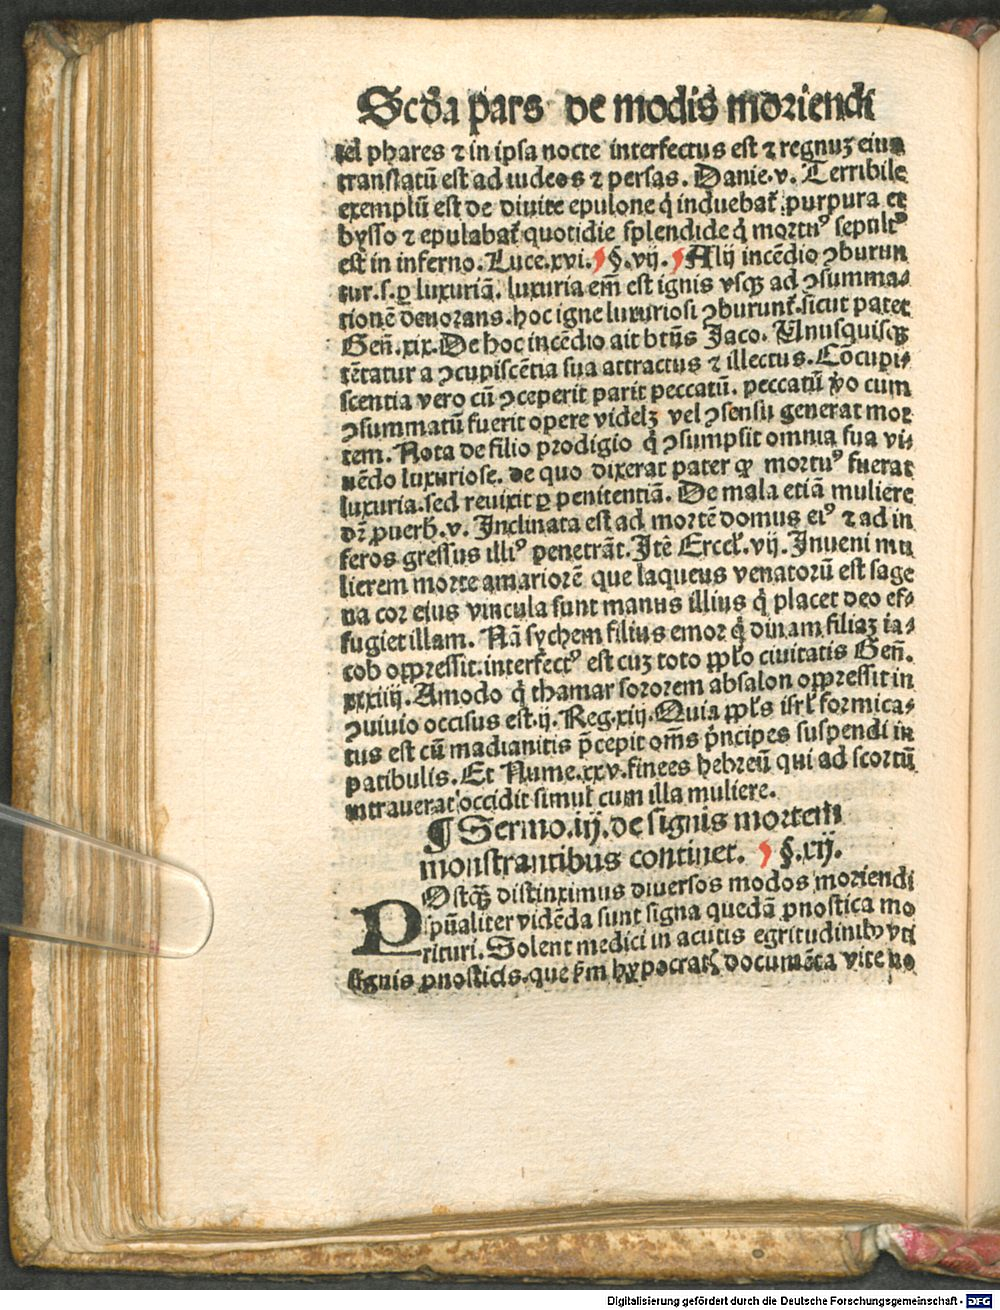 Scďa pars de modis moriendi
tel phares ⁊ in ipsa nocte interfectus est ⁊ regnuꝫ eius
translatū est ad iudeos ⁊ persas. Danie.v. Terribile
exemplū est de diuite epulone q̇ induebat᷑ purpura et
bysso ⁊ epulabat᷑ quotidie splendide q̇ mortuꝰ sepultꝰ
est in inferno. Luce.xvi. §.vij. Alij incēdio ↄburun
tur.s.ꝑ luxuriā. luxuria em̄ est ignis vsqꝫ ad ↄsumma⸗
tionē deuorans. hoc igne luxuriosi ↄburunt᷑.sicut patet
Gen̄.xix. De hoc incēdio ait btūs Jaco. Unusquisqꝫ
tētatur a ↄcupiscētia sua attractus ⁊ illectus. Cōcupi⸗
scentia vero cū ↄceperit parit peccatū. peccatū ṽo cum
ↄsummatū fuerit opere videlꝫ vel ↄsensu generat mor
tem. Nota de filio prodigio q̇ ↄsumpsit omnia sua vi⸗
uēdo luxuriose. de quo dixerat pater ꝙ mortuꝰ fuerat
luxuria.sed reuixit ꝑ penitentiā. De mala etiā muliere
dr̄ ꝓuerb̄.v. Inclinata est ad mortē domus eiꝰ ⁊ ad in
feros gressus illiꝰ penetrāt. Itē Eccel̄.vij. Inueni mu
lierem morte amariorē que laqueus venatorū est sage
na cor eius vincula sunt manus illius q̇ placet deo ef⸗
fugiet illam. Nā sychem filius emor q̇ dinam filiaꝫ ia⸗
cob oppressit.interfectꝰ est cuꝫ toto pplo ciuitatis Gen̄.
xxxiiij. Amodo q̇ thamar sororem absalon oppressit in
ↄuiuio occisus est.ij. Reg.xiij. Quia ppl̄s isrl̄ formica⸗
tus est cū madianitis p̄cepit om̄s p̄ncipes suspendi in
patibulis. Et Nume.xxv. finees hebreū qui ad scortū
intrauerat occidit simul cum illa muliere.
¶ Sermo.iij.de signis mortem
monstrantibus continet. §.xij.
POstqꝫ distinximus diuersos modos moriendi
spūaliter vidēda sunt signa quedā ꝓnostica mo
rituri. Solent medici in acutis egritudinibꝰ vti
signis ꝓnosticis.que s̄m hypocratꝭ documēta vite no
Digitalisierung gefördert durch die Deutsche Forschungsgemeinschaft - DFG